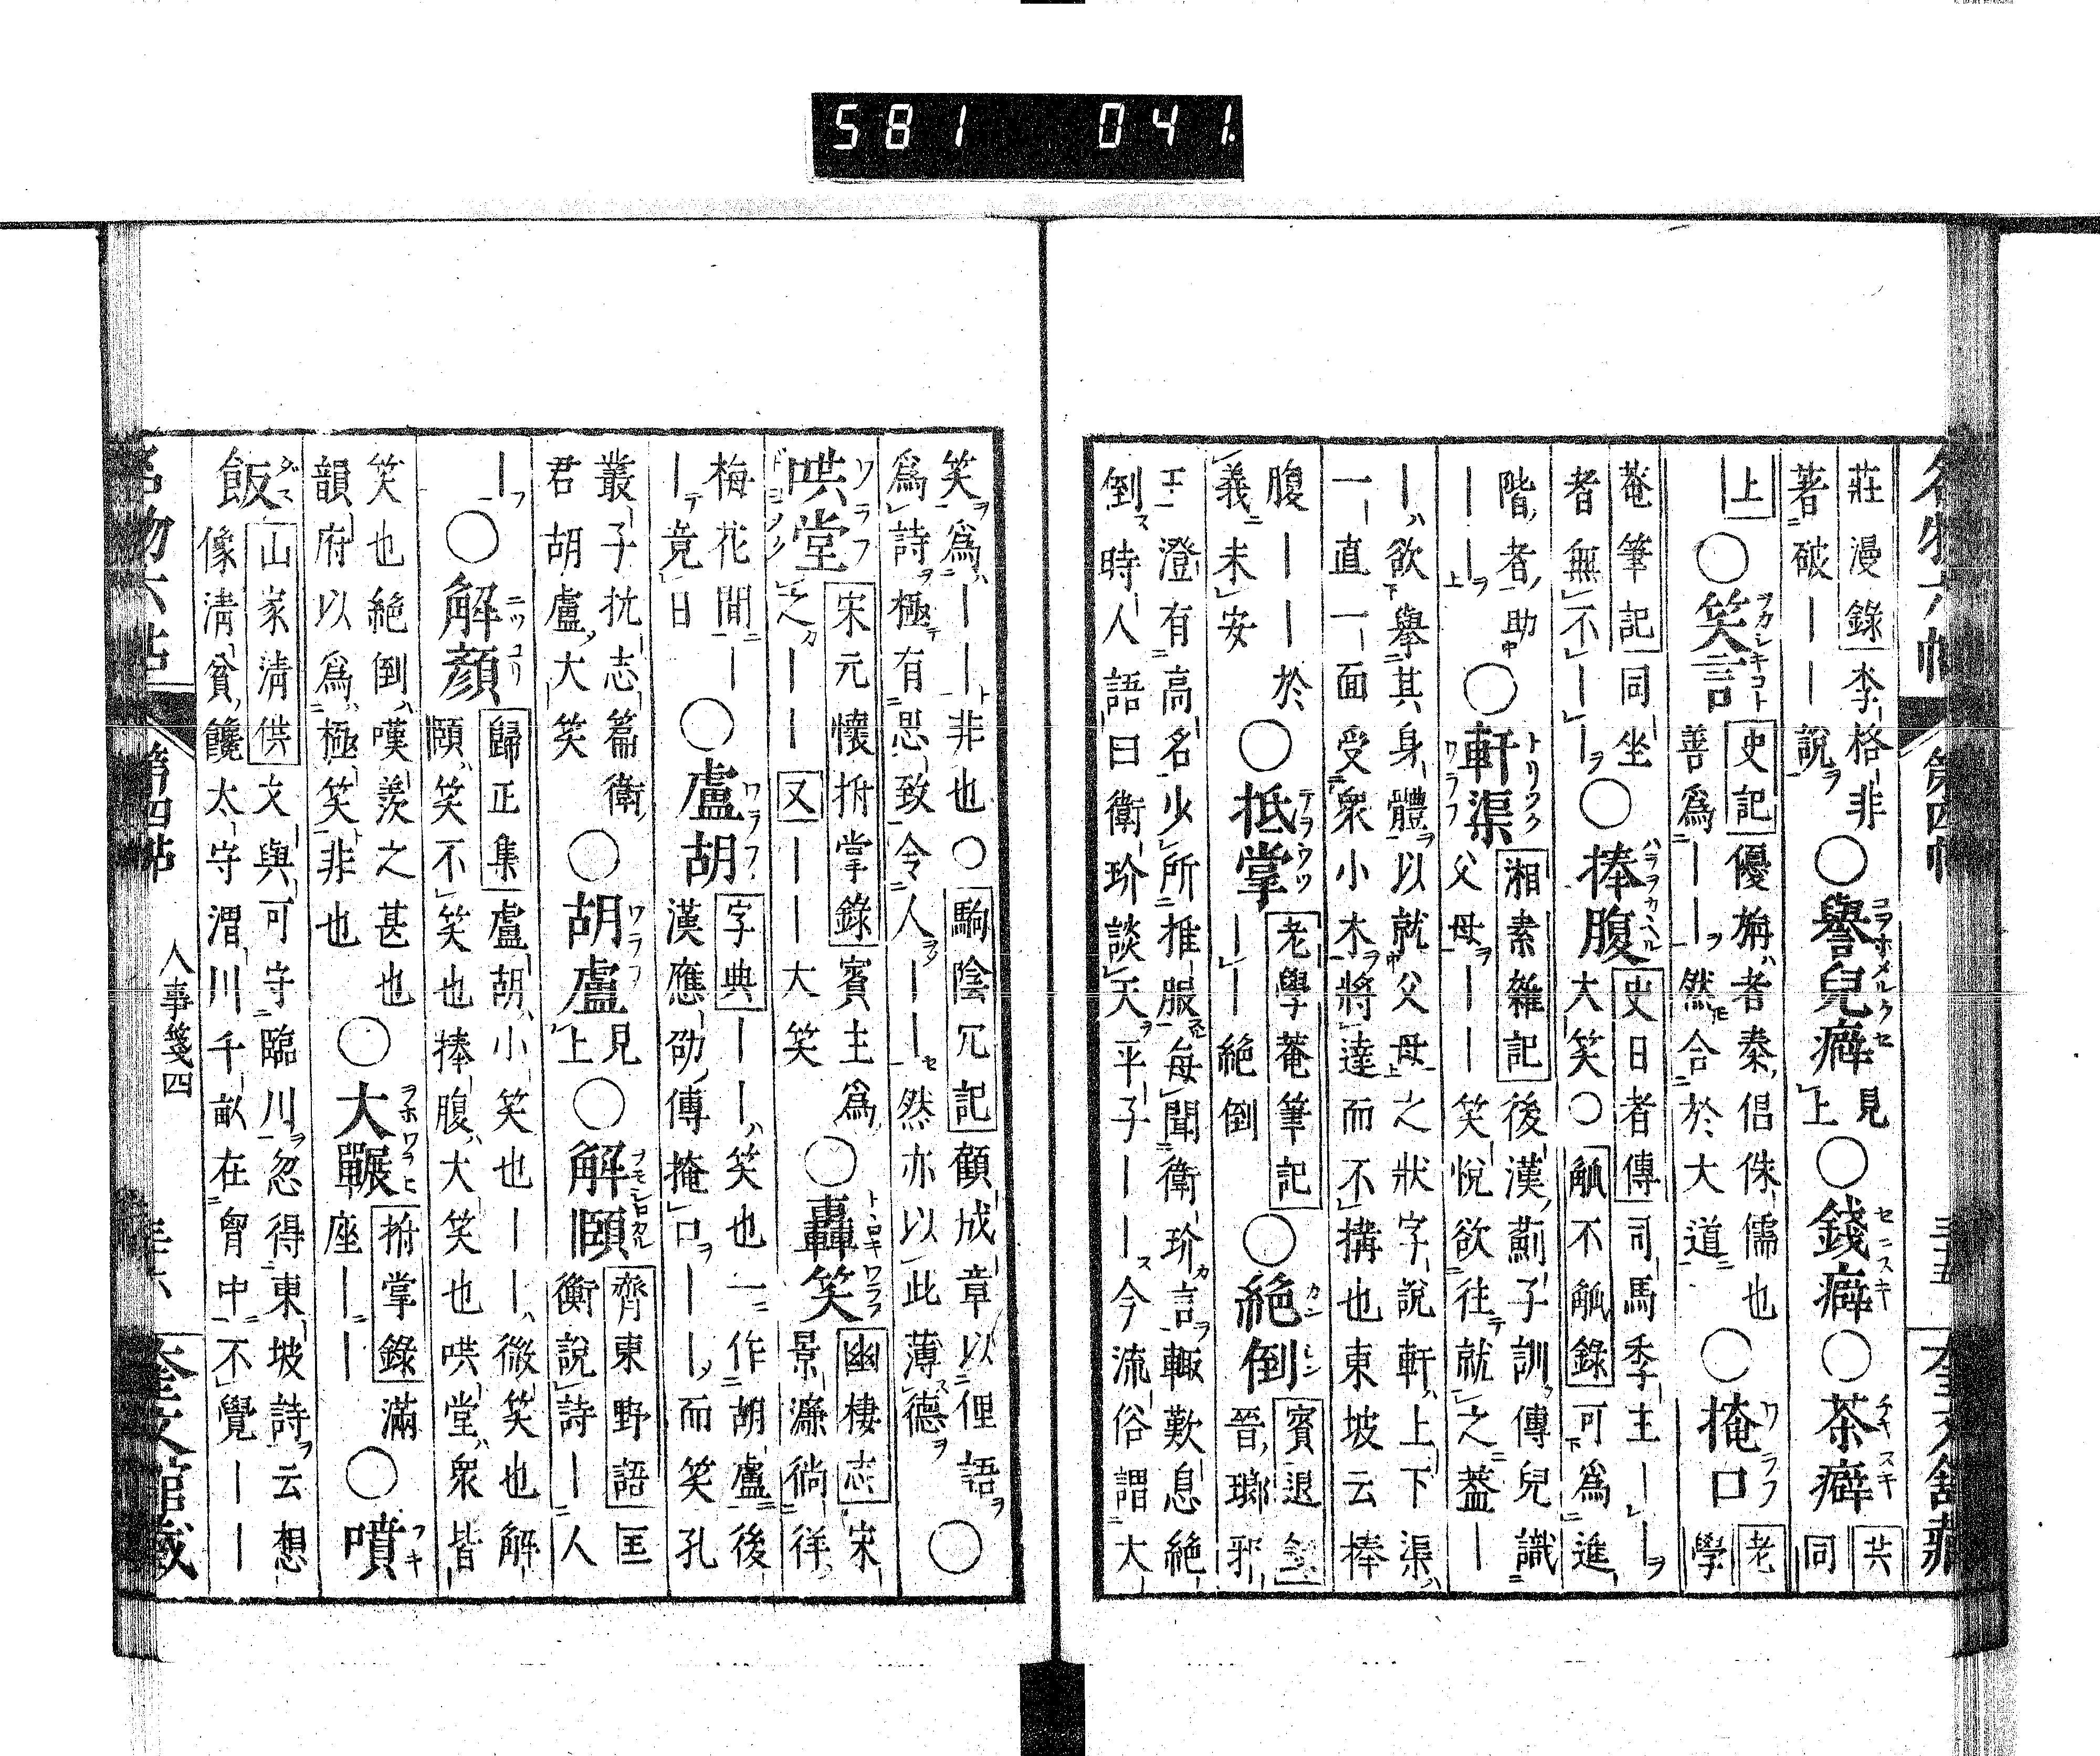 581 041
莊漫錄李格非
著破——說
○譽兒癖見上○錢癖○茶癖共同
上○笑言史記優旃者秦倡侏儒也
善爲——然合於大道
○掩口老學
菴筆記同坐
者無不——
○捧腹史日者傳司馬季主——
大笑○觚不觚錄可爲進
階者助
——
○軒渠湘素雜記後漢薊子訓傳兒識
父母——笑悅欲往就之蓋—
—欲擧其身體以就父母之狀字說軒上下渠
一一直一一面受衆小木將達而不搆也東坡云捧
腹——於
義未安
○抵掌老學菴筆記
——絶倒
○絶倒賓退錄
晉瑯邪
王澄有高名少所推服每聞衛玠言輒歎息絶
倒時人語曰衛玠談天平子——今流俗謂大
笑爲——非也○駒陰冗記顧成章以俚語
爲詩極有思致令人——然亦以此薄德
○
哄堂宋元懷拊掌錄賓主爲
之——又——大笑
○轟笑幽棲志宋
景濂徜徉
梅花間—
—竟日
○盧胡字典——笑也一作胡盧後
漢應劭傳掩口——而笑孔
叢子抗志篇衛
君胡盧大笑
○胡盧見上○解頤齊東野語匡
衡說詩—人
—
○解顏歸正集盧胡小笑也——微笑也解
頤笑不笑也捧腹大笑也哄堂衆皆
笑也絶倒嘆羨之甚也
韻府以爲極笑非也
○大囅拊掌錄滿
座——
○噴
飯山家清供文與可守臨川忽得東坡詩云想
像清貧饞太守渭川千畝在胷中不覺——
名物六帖 第四帖 人事箋四 奎文館藏